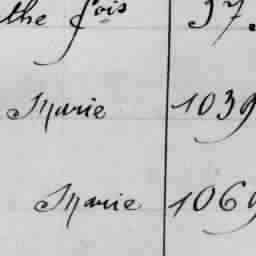 the fois 37.
Marie 1039
Marie 1069